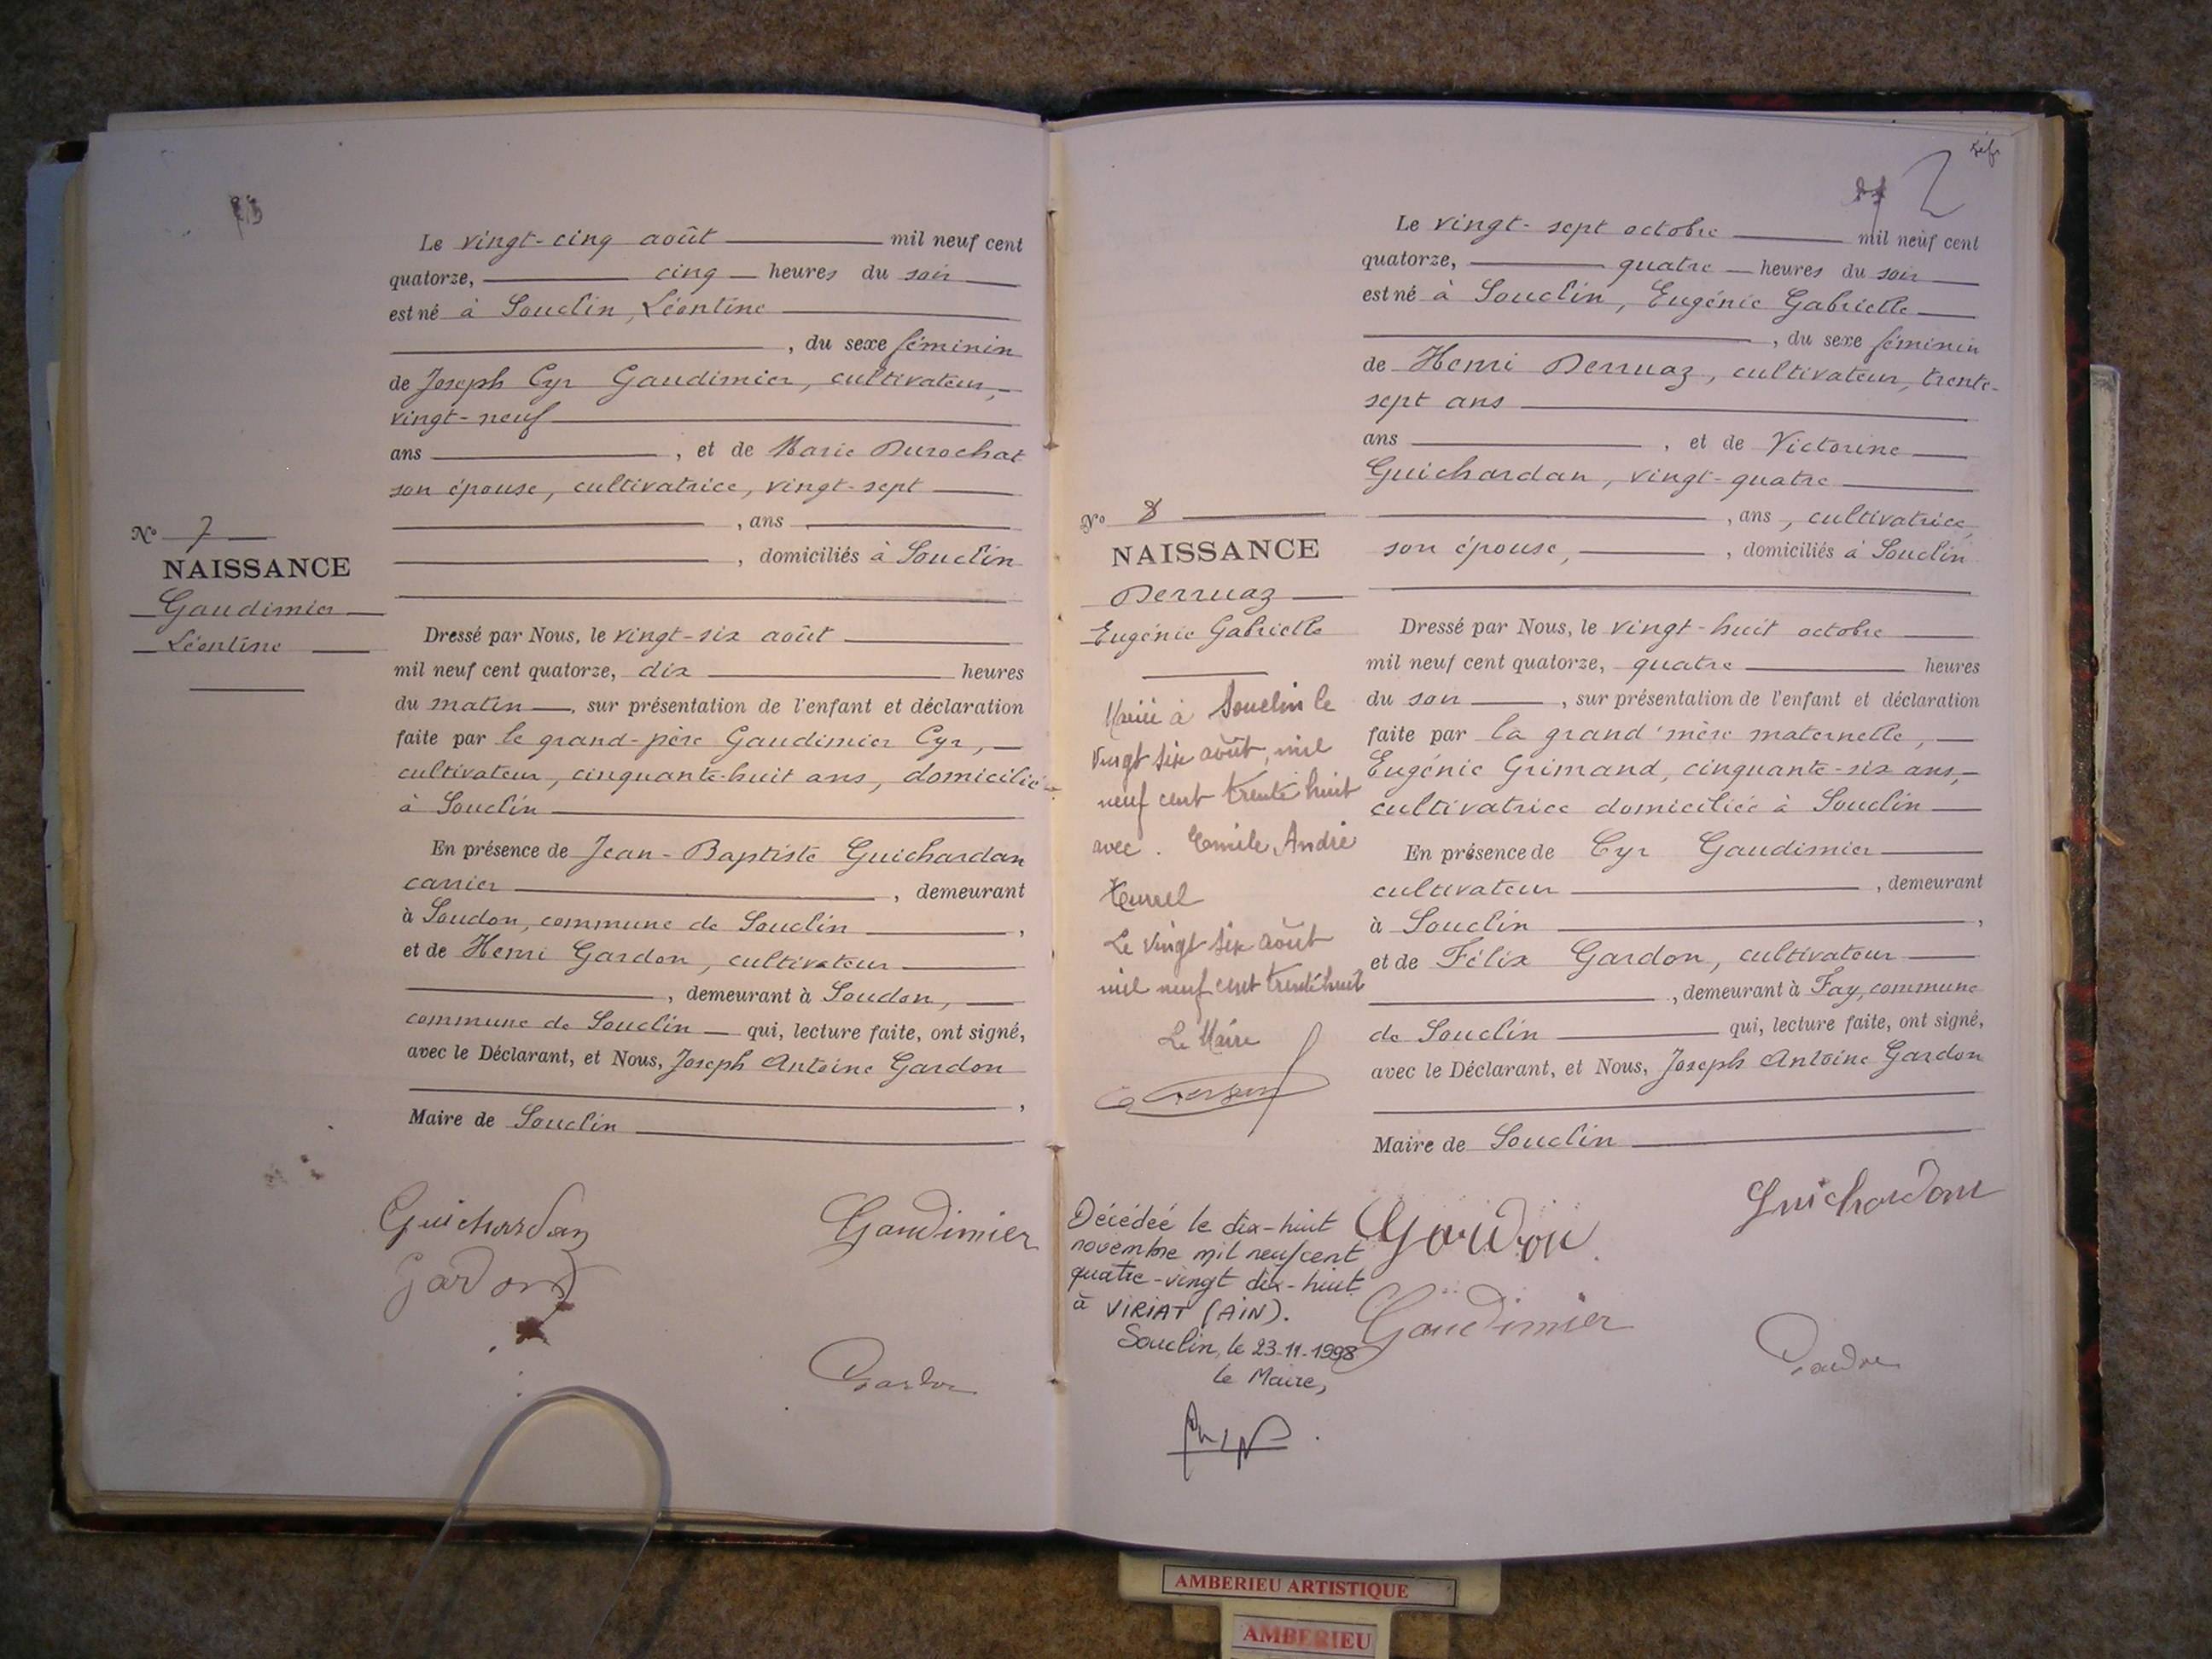 Le vingt-cinq août mil neuf cent
quatorze, cinq heures du soir
est né à Souclin, Léontine
, du sexe féminin
de Joseph Cyr Gaudimier, cultivateur,
vingt-neuf
ans , et de Marie Durochat
son épouse, cultivatrice, vingt-sept
, ans
, domiciliés à Souclin
N° 7
NAISSANCE
Gaudimier
Léontine
Dressé par Nous, le vingt-six août
mil neuf cent quatorze, dix heures
du matin , sur présentation de l'enfant et déclaration
faite par le grand-père Gaudimier Cyr,
cultivateur, cinquante-huit ans, domicilié
à Souclin
En présence de Jean-Baptiste Guichardan
carrier , demeurant
à Soudon, commune de Souclin ,
et de Henri Gardon, cultivateur
, demeurant à Soudon,
commune de Souclin qui, lecture faite, ont signé,
avec le Déclarant, et Nous, Joseph Antoine Gardon
,
Maire de Souclin
Guichardan Gaudimier
Gardon
Gardon
2
Le vingt-sept octobre mil neuf cent
quatorze, quatre heures du soir
est né à Souclin, Eugénie Gabrielle
, du sexe féminin
de Henri Derruaz, cultivateur, trente-
sept ans
ans , et de Victorine
Guichardan, vingt-quatre
, ans , cultivatrice,
son épouse, , domiciliés à Souclin
N° 8
NAISSANCE
Derruaz
Eugénie Gabrielle
Mariée à Souclin le
vingt six août, mil
neuf cent trente huit
avec . Emile, André
Le vingt six août
mil neuf cent trente huit
Le Maire
Dressé par Nous, le vingt-huit octobre
mil neuf cent quatorze, quatre heures
du soir , sur présentation de l'enfant et déclaration
faite par la grand'mère maternelle,
Eugénie Grimand, cinquante-six ans,
cultivatrice domiciliée à Souclin
En présence de Cyr Gaudimier
cultivateur , demeurant
à Souclin ,
et de Félix Gardon, cultivateur
, demeurant à Fay, commune
de Souclin qui, lecture faite, ont signé,
avec le Déclarant, et Nous, Joseph Antoine Gardon
Maire de Souclin
Décédée le dix-huit
novembre mil neuf cent
quatre-vingt dix-huit
à VIRIAT (AIN).
Souclin, le 23-11-1998
le Maire,
Gardon Guichardan
Gaudimier
Gardon
AMBERIEU ARTISTIQUE
AMBERIEU